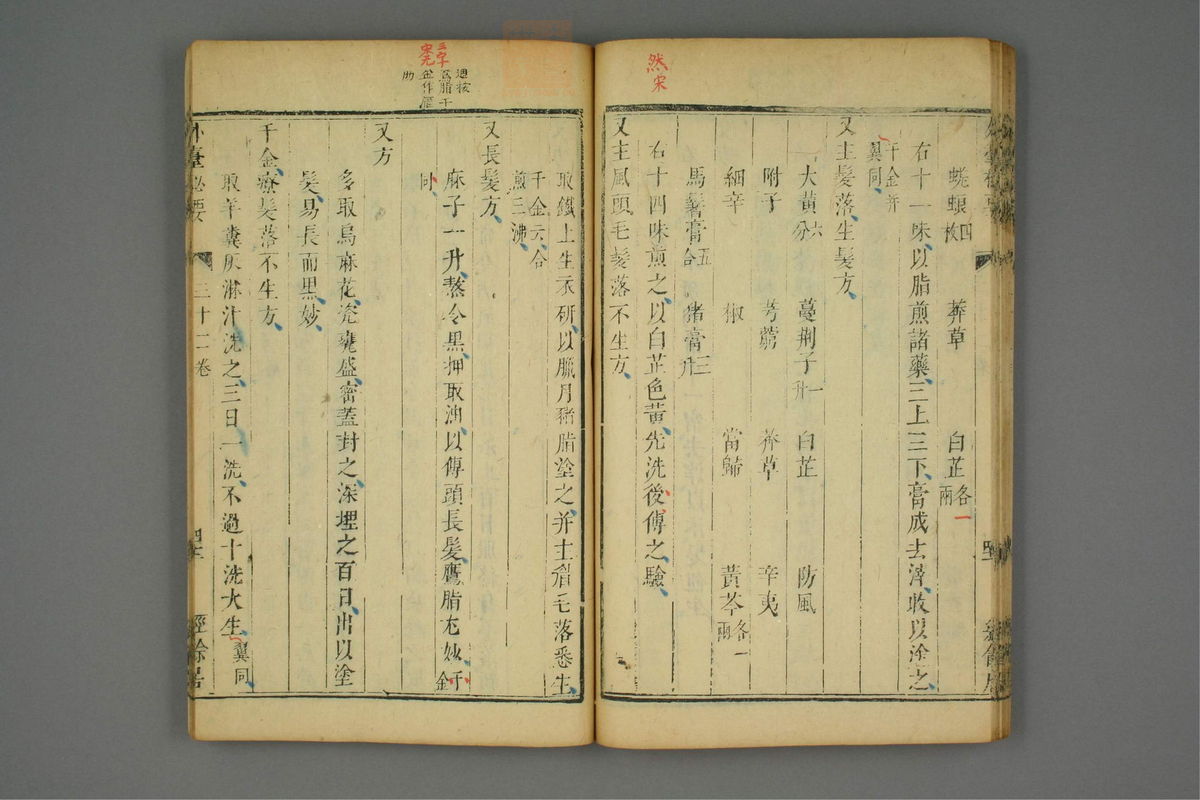 然宋
蜣蜋四枚 莽草 白芷各一兩
右十一味以脂煎諸藥三上三下膏成去滓收以塗之
千金并翼同
又主髮落生髮方
大黃六分 蔓荆子一升 白芷 防風
附子 芎藭 莽草 辛夷
細辛 椒 當歸 黃芩各一兩
馬鬐膏五合 猪膏三升
右十四味煎之以白芷色黃先洗後傅之驗
又主風頭毛髮落不生方
取鐵上生衣研以臘月猪脂塗之并主眉毛落悉生
千金云合煎三沸
又長髮方
麻子一升熬令黑押取油以傅頭長髮鴈脂尤妙千金
同
又方
多取烏麻花瓷甕盛密蓋封之深埋之百日出以塗
髮易長而黑妙
千金療髮落不生方
取羊糞灰淋汁洗之三日一洗不過十洗大生翼同
外臺秘要 三十二卷 經餘居